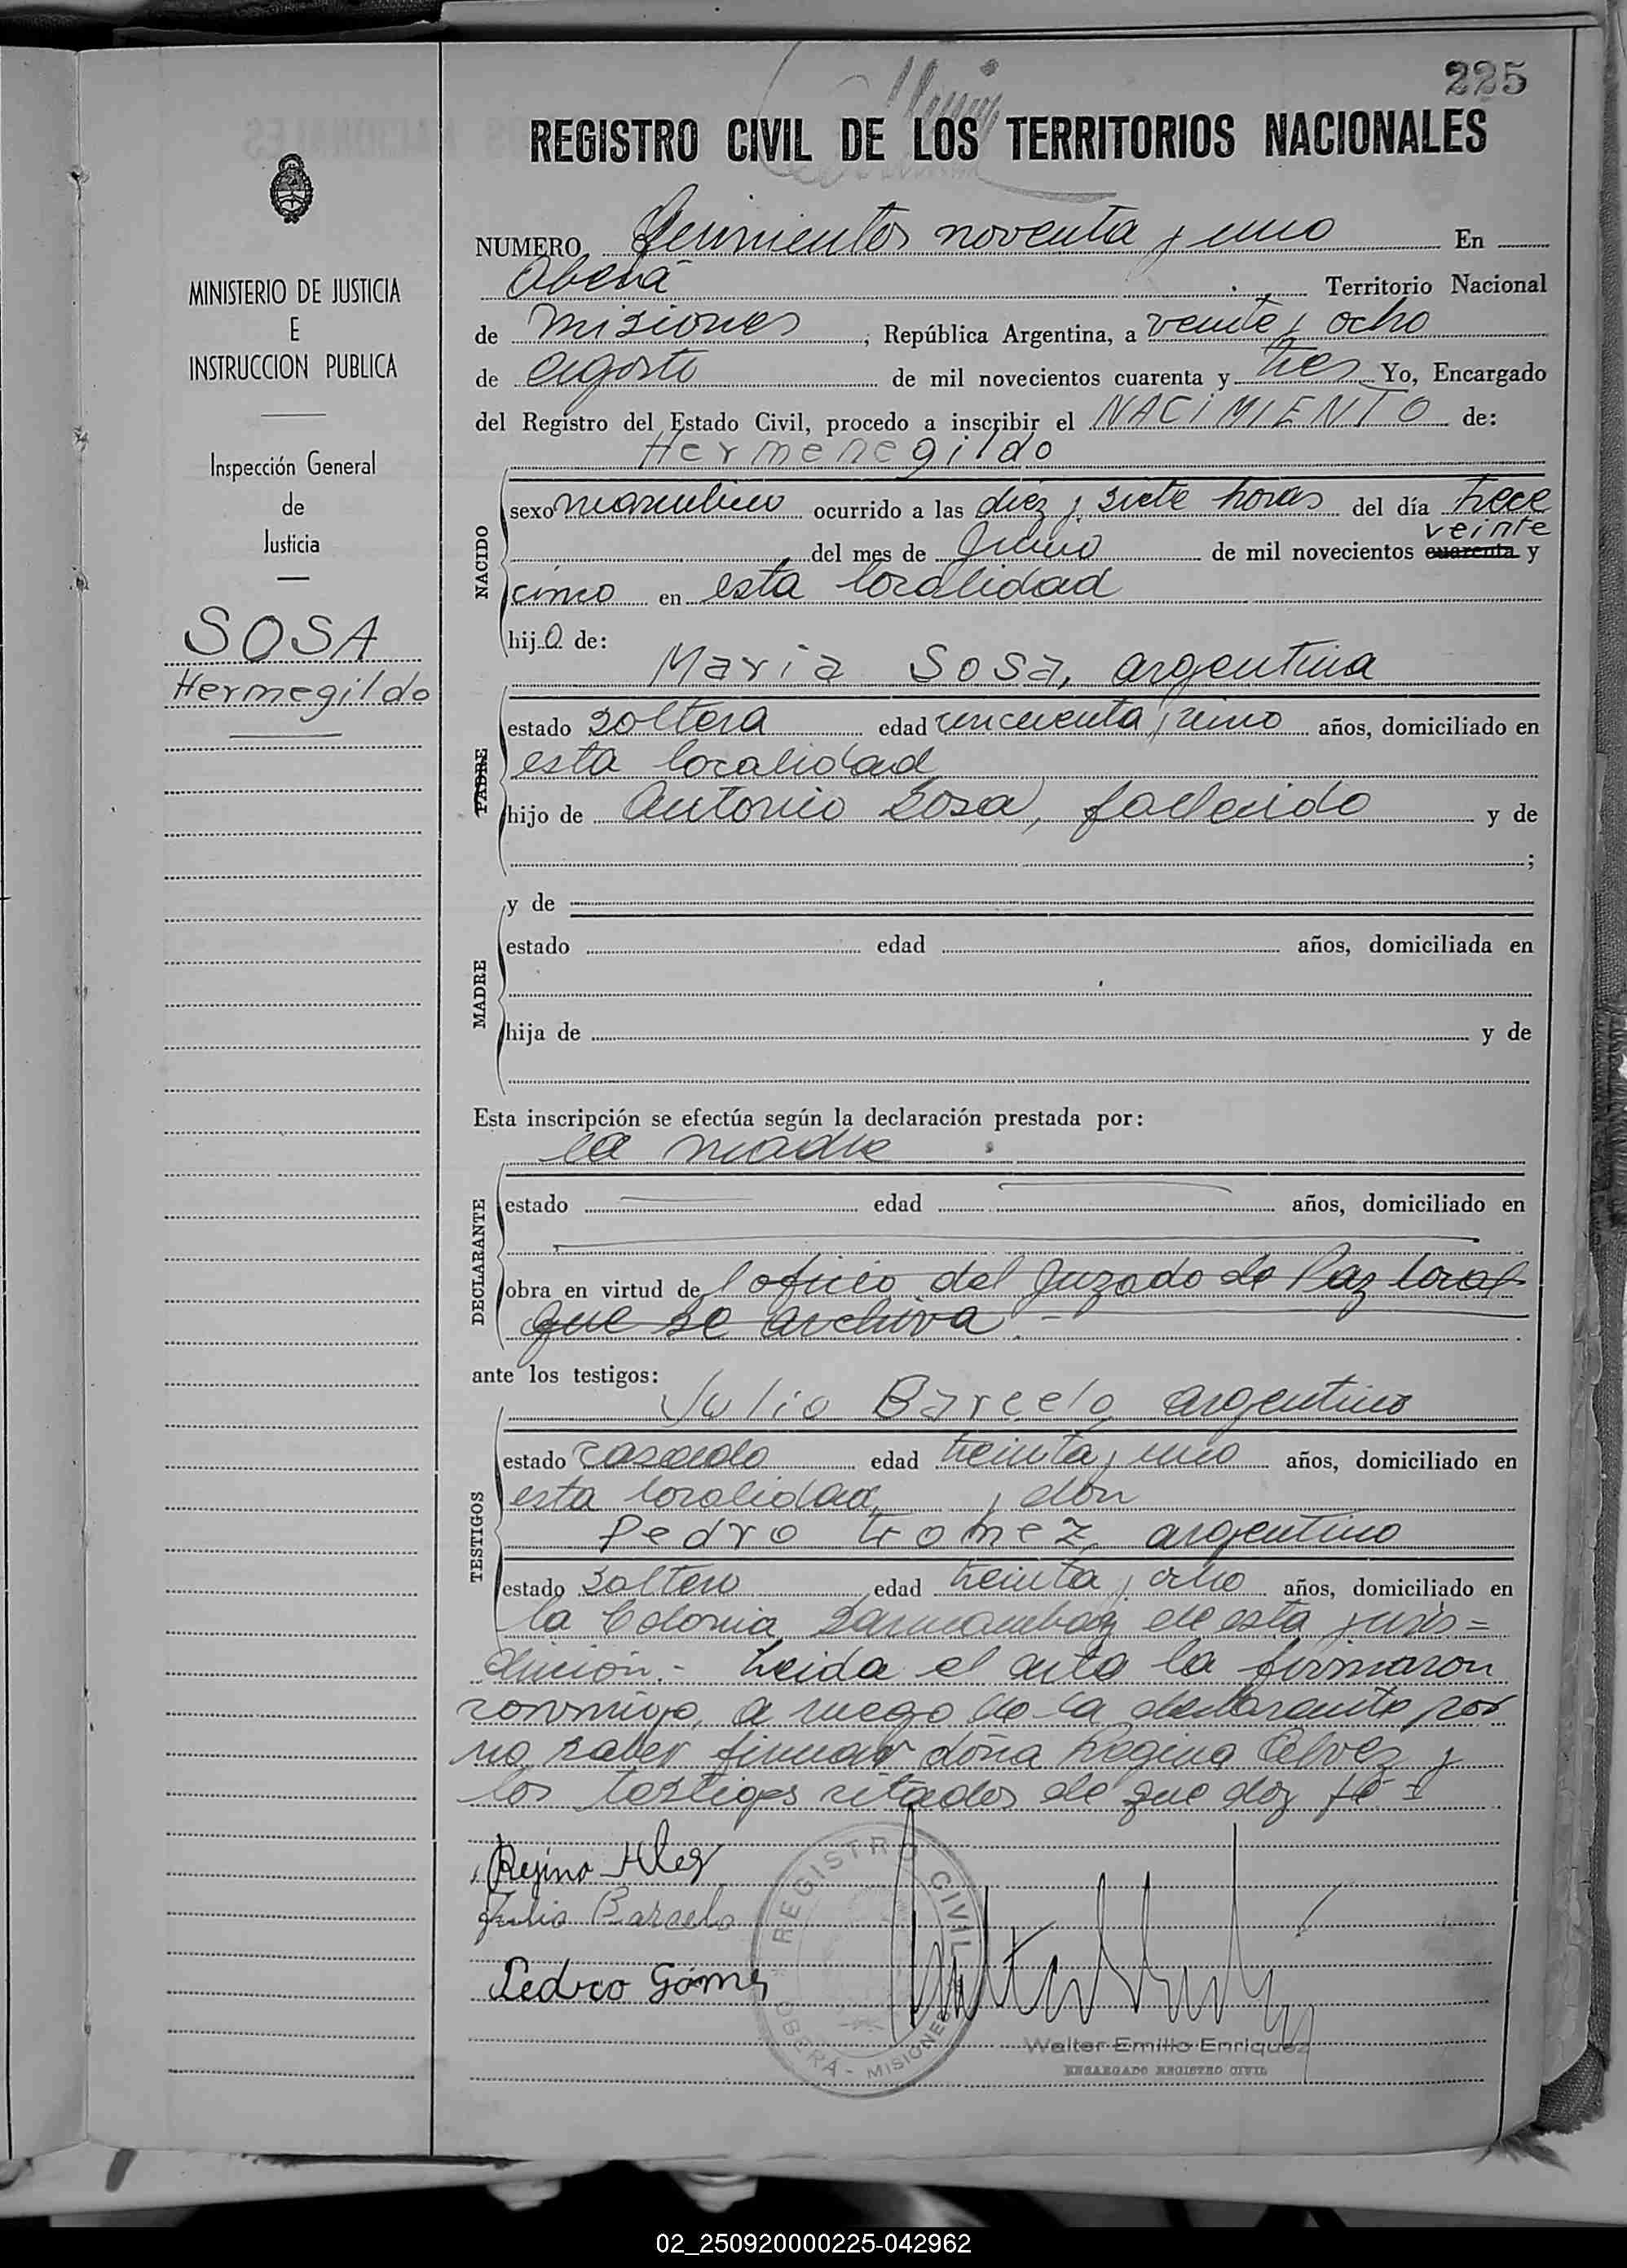 225
REGISTRO CIVIL DE LOS TERRITORIOS NACIONALES
NUMERO noventa y uno En
Oberá Territorio Nacional
de Misiones ; República Argentina, a veinte y ocho
de agosto de mil novecientos cuarenta y tres Yo, Encargado
del Registro del Estado Civil, procedo a inscribir el NACIMIENTO de:
Hermenegildo
NACIDO
sexo masculino ocurrido a las diez y siete horas del día trece
veinte
del mes de de mil novecientos cuarenta y
cinco en esta localidad
hijo de:
Maria Sosa, argentina
PADRE
estado soltera edad años, domiciliado en
esta localidad
hijo de Antonio Sosa, fallecido y de
;
MADRE
y de
estado edad años, domiciliada en
hija de y de
Esta inscripción se efectúa según la declaración prestada por:
la madre
DECLARANTE
estado edad años, domiciliado en
obra en virtud del oficio del Juzgado de Paz local
que se archiva.-
ante los testigos:
TESTIGOS
Julio Barcelo, argentino
estado casado edad treinta y uno años, domiciliado en
esta localidad, y don
Pedro Gomez, argentino
estado soltero edad treinta y ocho años, domiciliado en
la Colonia de esta juris=
dicción.- Leida el acta la firmaron
conmigo, a ruego de la declarante por
no saber firmar doña Regina Alvez y
los testigos citados de que doy fé
Julio Barcelo
Pedro Gómez
REGISTRO CIVIL
OBERÁ - MISIONES
Walter Emilio Enriquez
ENCARGADO REGISTRO CIVIL
MINISTERIO DE JUSTICIA
E
INSTRUCCION PUBLICA
Inspección General
de
Justicia
SOSA
Hermegildo
02_250920000225-042962